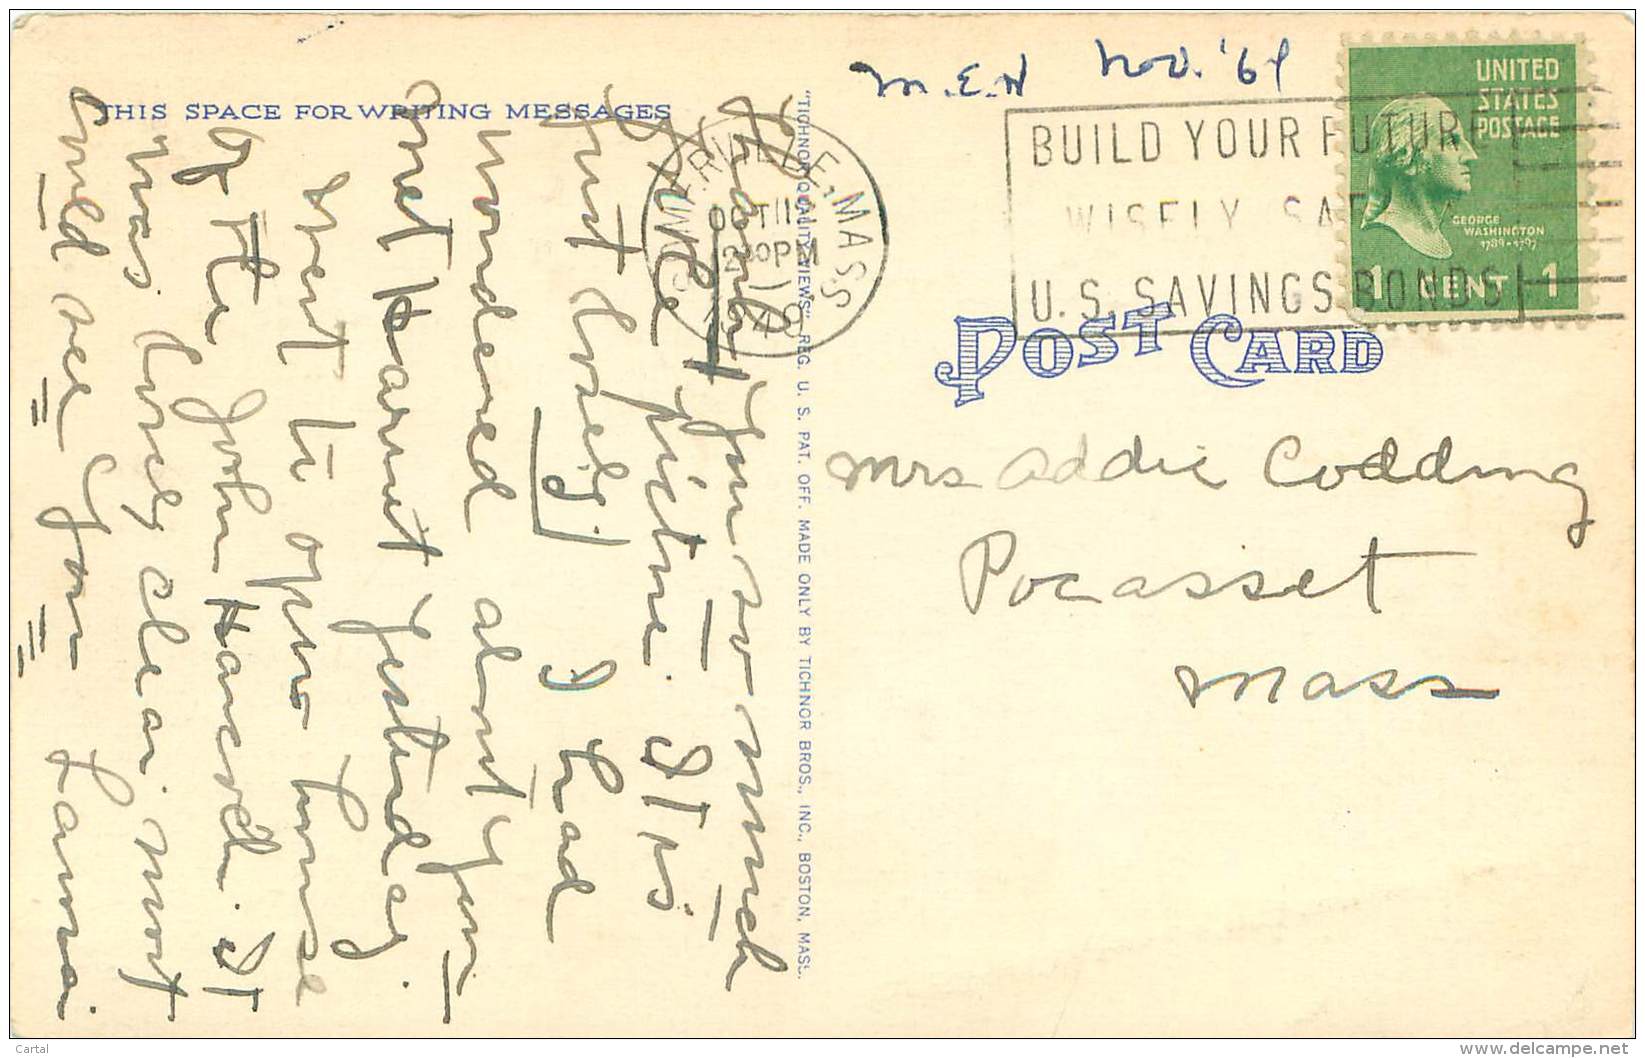 THIS SPACE FOR WRITING MESSAGES
Thank you so much
for the picture. It is
just lovely! I had
wondered about you
met Harriet yesterday.
went to open house
of the John Hancock. It
was lovely dear wont
could see you
"TICHNOR QUALITY VIEWS" REG. U. S. PAT. OFF. MADE ONLY BY TICHNOR BROS., INC., BOSTON, MASS.
M.E.H Nov. '61
SOMERVILLE, MASS
OCT 11
2 30 PM
1949
BUILD YOUR FUTURE
WISELY SAFELY
U.S. SAVINGS BONDS
UNITED
STATES
POSTAGE
GEORGE
WASHINGTON
1789-1797
1 CENT 1
POST CARD
Mrs Addie Codding
Pocasset
Mass
Cartal
delcampe.net